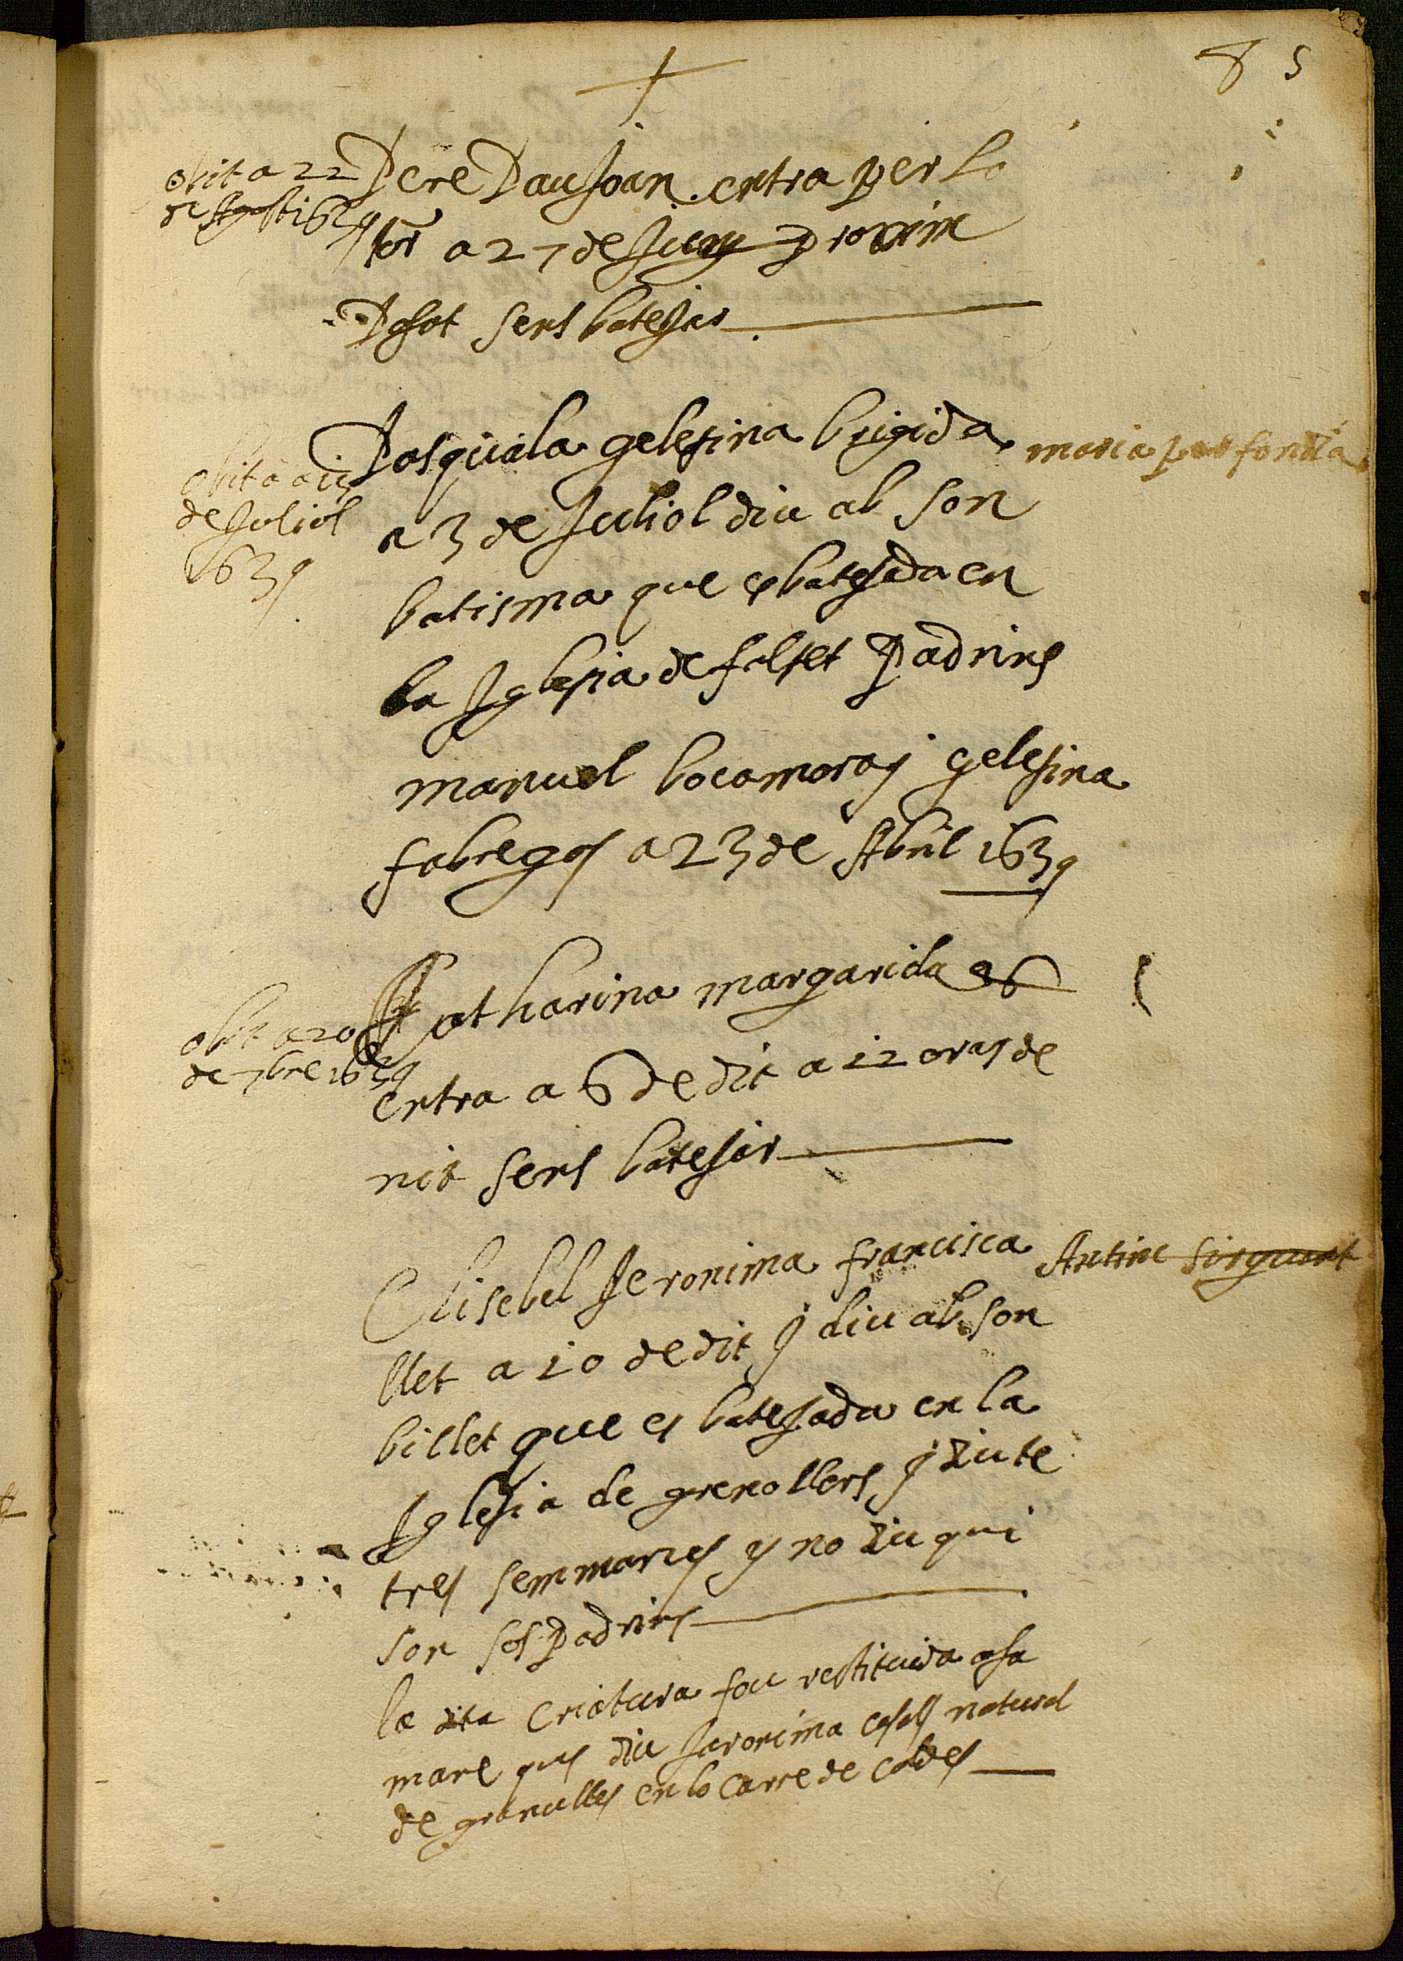 85
obit a 22
de Agost 1639
Pere Pau Joan entra per lo
torn a 27 de Juny proxim
Pasat sens batejar
obita a 13
de Juliol
1639
Pasquala gelesina brigida
maria
a 3 de Juliol diu ab son
batisma que es batejada en
la Iglesia de falset Padrins
manuel bocamora y gelesina
fabregas a 23 de Abril 1639
obit a 20
de 7bre 1639
Catharina margarida
entra a 6 de dit a 12 oras de
nit sens batejar
Elisebel Jeronima francisca
llet a 10 de dit y diu ab son
billet que es batejada en la
Iglesia de grenollers y diu te
tres semmanes y no diu qui
son sos Padrins
la dita criatura fou restituida a sa
mare ques diu Jaronima casals natural
de granulles en lo carre de caldes